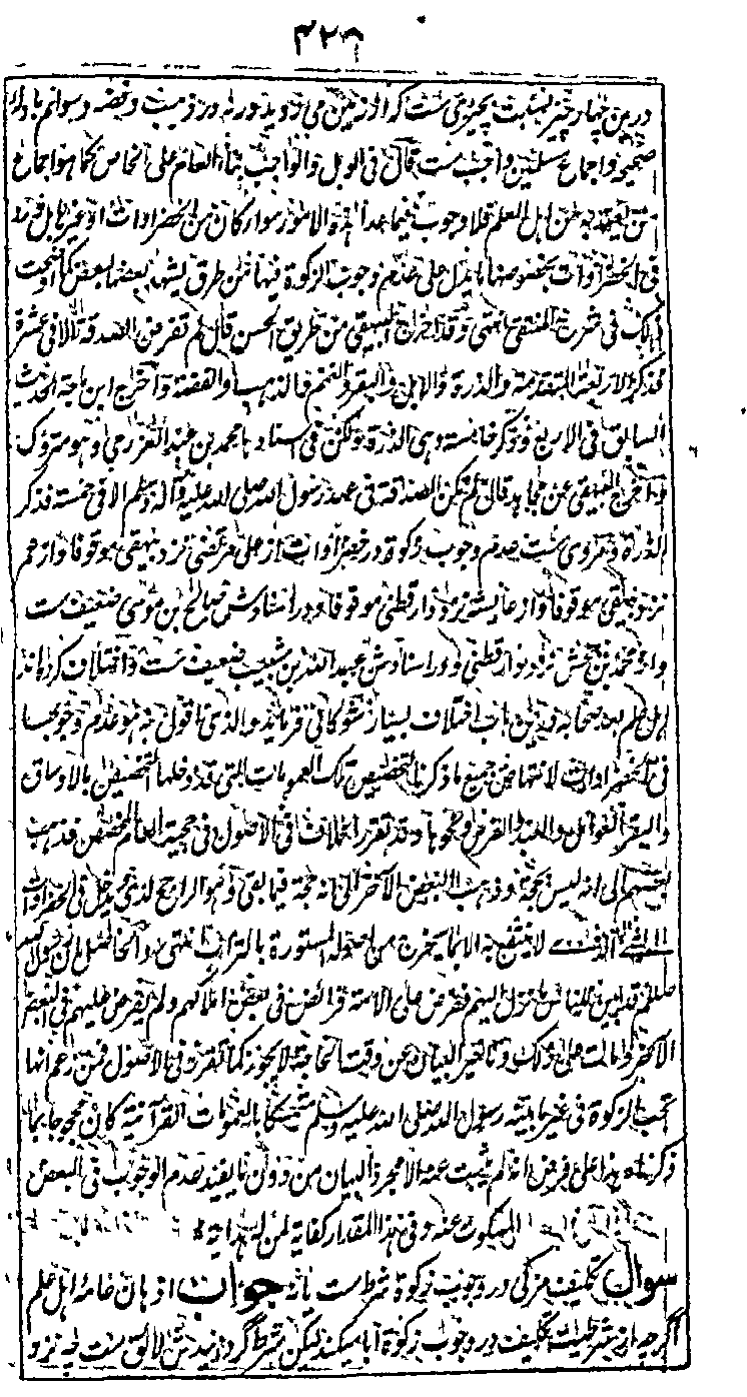 ۴۲۶
درین چهار چیز نسبت بچیزی ست که از زمین می روید ورنه در ذهب وفضه وسوائم بادله
صحیحه واجماع مسلمین واجب ست قال فی الوبل والواجب بناء العام علی الخاص کما هو اجماع
من یعتد به من اهل العلم فلا وجوب فیما عدا هذه الامور سواء کان من الخضراوات او غیرها بل ورد
فی الخضراوات بخصوصها ما یدل علی عدم وجوب الزکوة فیها من طرق یشهد بعضها لبعض کما اوضحت
ذلک فی شرح المنتقی انتهی وقد اخرج البیهقی من طریق الحسن قال لم تفرض الصدقة الا فی عشرة
فذکر الاربعة المتقدمة والذرة والابل والبقر والغنم والذهب والفضة واخرج ابن ماجة الحدیث
السابق فی الاربع وذکر خامسة وهی الذرة ولکن فی اسنادها محمد بن عبید الله العرزمی وهو متروک
واخرج البیهقی عن مجاهد قال لم تکن الصدقة فی عهد رسول الله صلی الله علیه وآله وسلم الا فی خمسة فذکر
الذرة ومروی ست عدم وجوب زکوة در خضراوات از علی مرتضی نزد بیهقی موقوفا واز عمر
نزد بیهقی موقوفا واز عایشه نزد دارقطنی موقوفا ودر اسنادش صالح بن موسی ضعیف ست
واز محمد بن جحش نزد دارقطنی ودر اسنادش عبد الله بن شبیب ضعیف ست واختلاف کرده اند
اهل علم بعد صحابه درین باب اختلاف بسیار شوکانی فرماید والذی اقول به هو عدم وجوبها
فی الخضراوات لانتهاض جمیع ما ذکرنا لتخصیص تلک العمومات التی قد دخلها التخصیص بالاوساق
والبقر العوامل والعبد والفرس ونحوها وقد تقرر الخلاف فی الاصول فی حجیة العام المخصص فذهب
بعضهم الی انه لیس بحجة وذهب البعض الآخر الی انه حجة فیما بقی وهو الراجح لدی
لا ینتفع به الا بما یخرج من المستورة بالتراب انتهی والحاصل ان رسول الله
صلعم قد بین للناس ما نزل الیهم ففرض علی الامة فرائض فی بعض املاکهم ولم یفرض علیهم فی البعض
الآخر ومات علی ذلک وتاخیر البیان عن وقت الحاجة لا یجوز کما تقرر فی الاصول فمن زعم انها
تجب الزکوة فی غیر ما بینه رسول الله صلی الله علیه وسلم متمسکا بالعمومات القرآنیة کان محجوجا بما
ذکرناه هذا علی فرض انه لم یثبت عنه الا مجرد البیان من دون ما یفید عدم الوجوب فی البعض
المسکوت عنه وفی هذا المقدار کفایة لمن له هدایة
سوال تکلیف مزکی در وجوب زکوة شرط ست یا نه جواب اذهان عامهٔ اهل علم
اگرچه از شرطیت تکلیف در وجوب زکوة ابا میکند لیکن شرط گردانیدنش لائق ست چه نزد